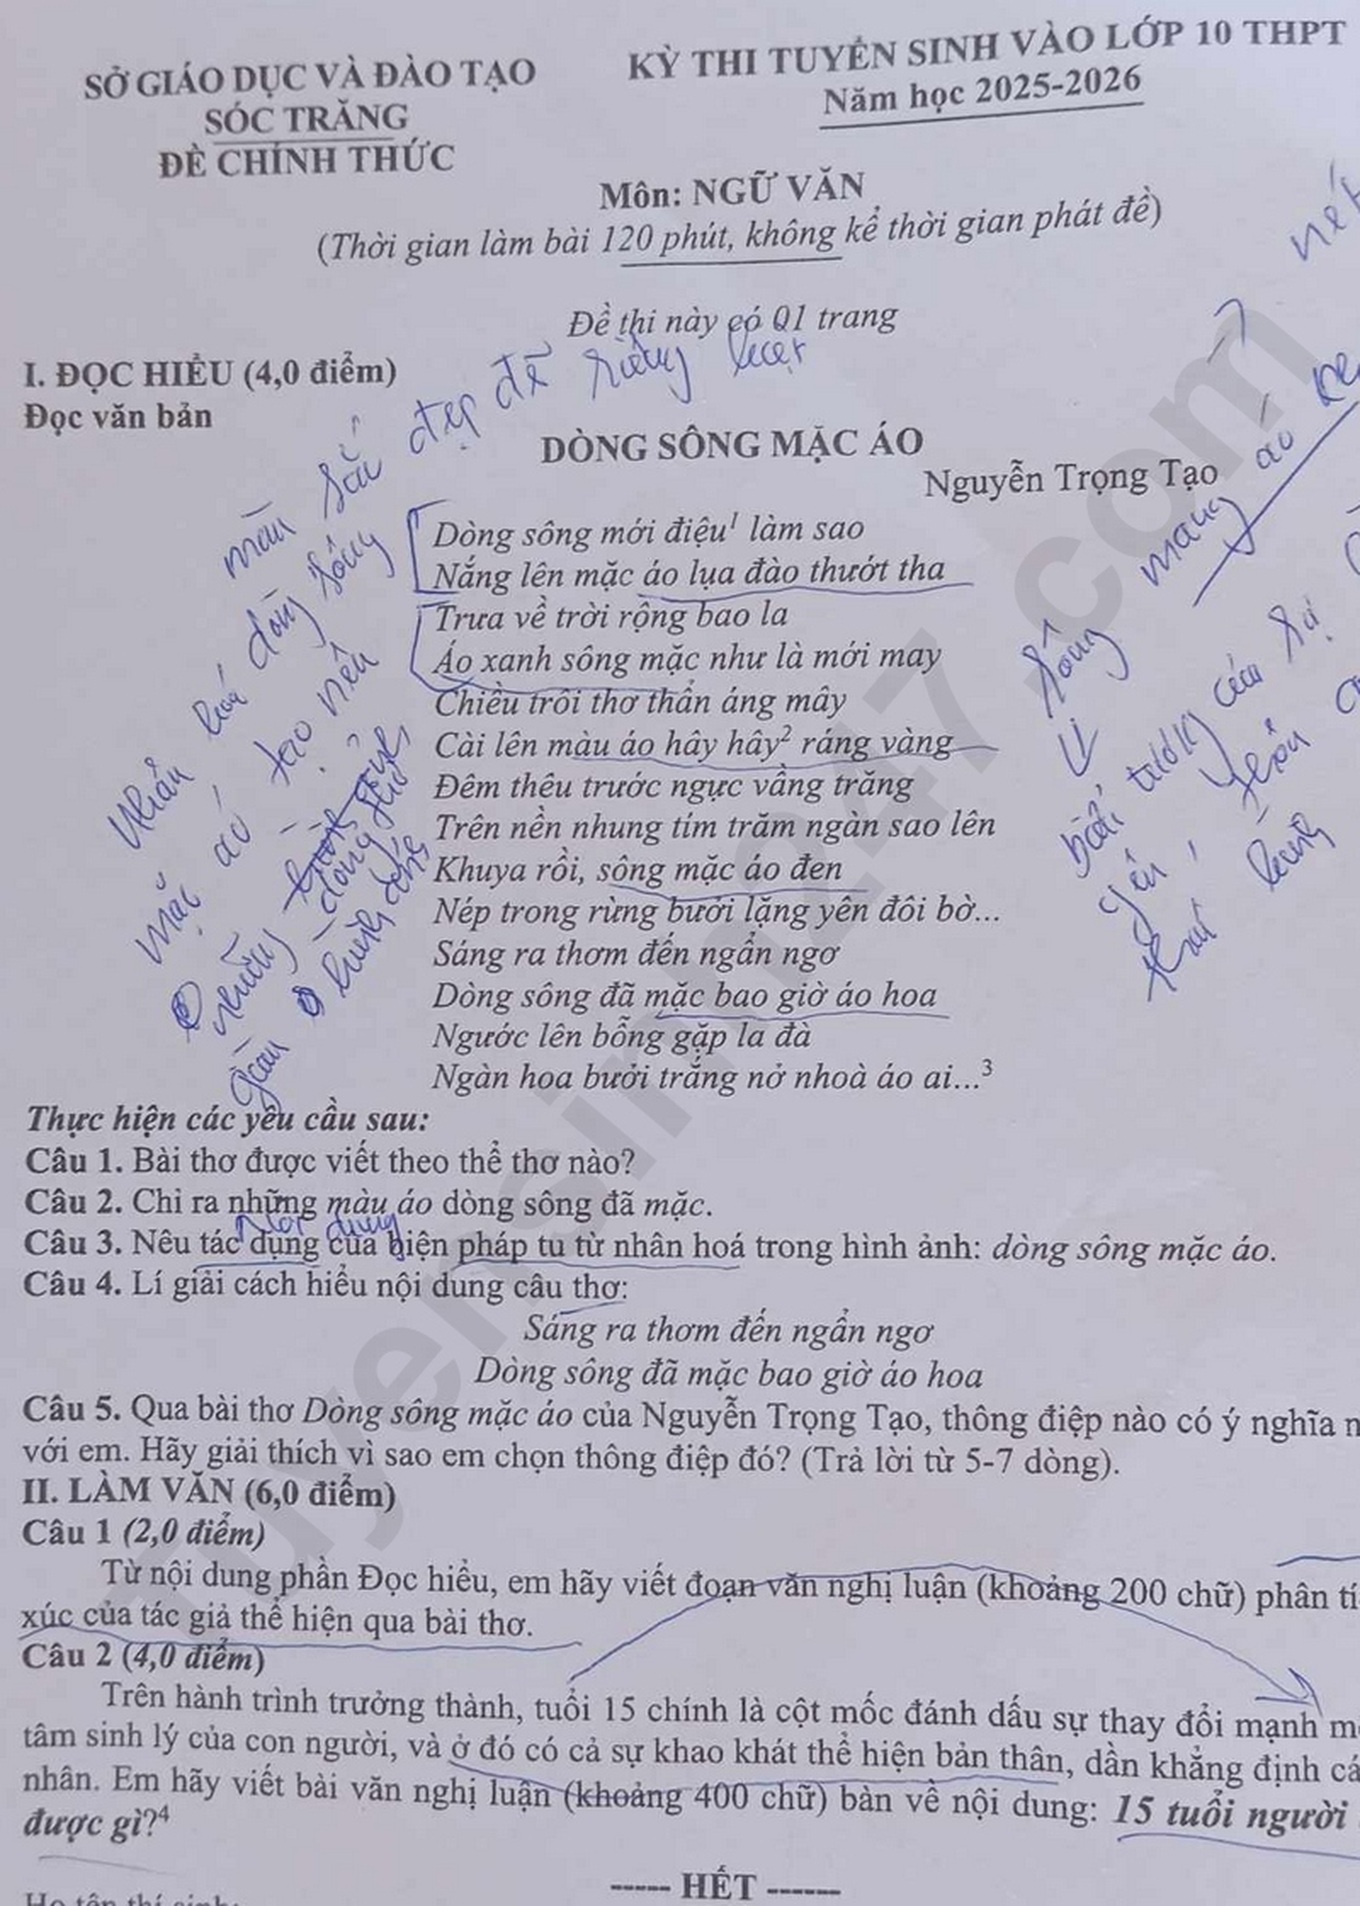 SỞ GIÁO DỤC VÀ ĐÀO TẠO
SÓC TRĂNG
ĐỀ CHÍNH THỨC
KỲ THI TUYỂN SINH VÀO LỚP 10 THPT
Năm học 2025-2026
Môn: NGỮ VĂN
(Thời gian làm bài 120 phút, không kể thời gian phát đề)
Đề thi này có 01 trang
I. ĐỌC HIỂU (4,0 điểm)
Đọc văn bản
màu sắc đẹp đẽ riêng biệt
DÒNG SÔNG MẶC ÁO
Nguyễn Trọng Tạo
Dòng sông mới điệu¹ làm sao
Nắng lên mặc áo lụa đào thướt tha
Trưa về trời rộng bao la
Áo xanh sông mặc như là mới may
Chiều trôi thơ thẩn áng mây
Cài lên màu áo hây hây² ráng vàng
Đêm thêu trước ngực vầng trăng
Trên nền nhung tím trăm ngàn sao lên
Khuya rồi, sông mặc áo đen
Nép trong rừng bưởi lặng yên đôi bờ...
Sáng ra thơm đến ngẩn ngơ
Dòng sông đã mặc bao giờ áo hoa
Ngước lên bỗng gặp la đà
Ngàn hoa bưởi trắng nở nhoà áo ai...³
Nhân hoá dòng sông
mặc áo tạo nên
những
dòng
gần
sông mang áo
biểu tượng của sự
yên
Thực hiện các yêu cầu sau:
Câu 1. Bài thơ được viết theo thể thơ nào?
Câu 2. Chỉ ra những màu áo dòng sông đã mặc.
nội dung
Câu 3. Nêu tác dụng của biện pháp tu từ nhân hoá trong hình ảnh: dòng sông mặc áo.
Câu 4. Lí giải cách hiểu nội dung câu thơ:
Sáng ra thơm đến ngẩn ngơ
Dòng sông đã mặc bao giờ áo hoa
Câu 5. Qua bài thơ Dòng sông mặc áo của Nguyễn Trọng Tạo, thông điệp nào có ý nghĩa
với em. Hãy giải thích vì sao em chọn thông điệp đó? (Trả lời từ 5-7 dòng).
II. LÀM VĂN (6,0 điểm)
Câu 1 (2,0 điểm)
Từ nội dung phần Đọc hiểu, em hãy viết đoạn văn nghị luận (khoảng 200 chữ) phân
xúc của tác giả thể hiện qua bài thơ.
Câu 2 (4,0 điểm)
Trên hành trình trưởng thành, tuổi 15 chính là cột mốc đánh dấu sự thay đổi mạnh
tâm sinh lý của con người, và ở đó có cả sự khao khát thể hiện bản thân, dần khẳng định
nhân. Em hãy viết bài văn nghị luận (khoảng 400 chữ) bàn về nội dung: 15 tuổi người
được gì?⁴
----- HẾT ------
tuyensinh247.com